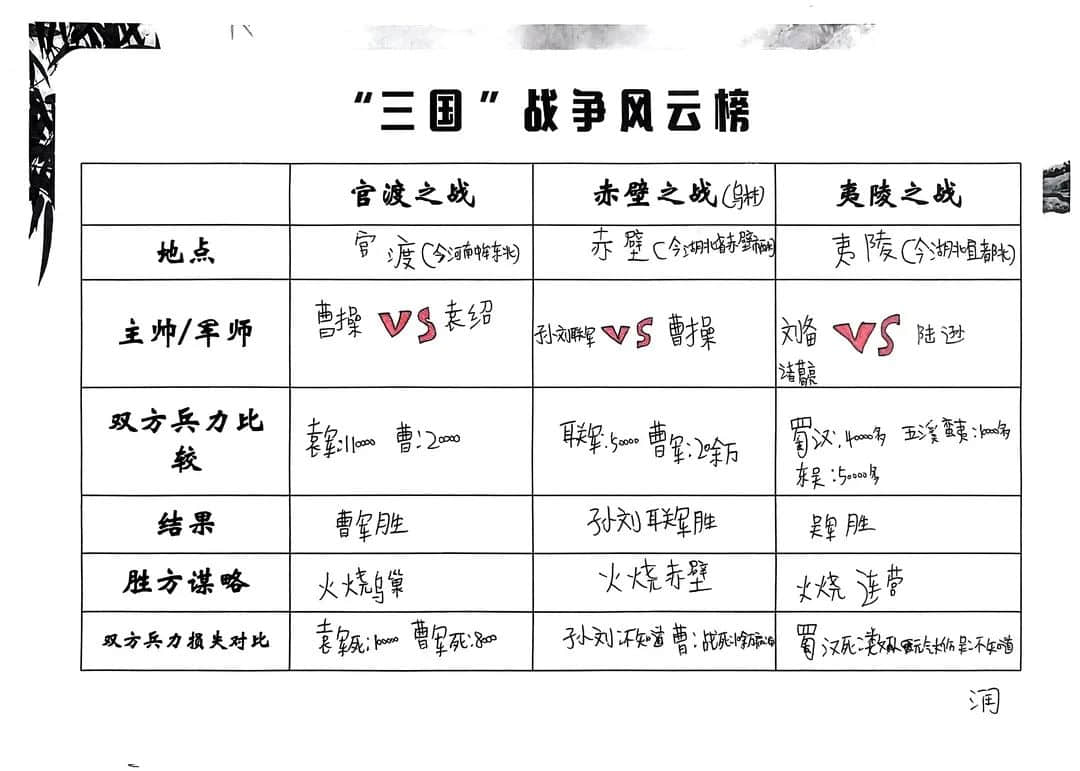 “三国”战争风云榜
官渡之战 赤壁之战(乌林) 夷陵之战
地点 官渡(今河南中牟东北) 赤壁(今湖北省赤壁市西) 夷陵(今湖北宜都北)
主帅/军师 曹操 VS 袁绍 孙刘联军 VS 曹操 刘备 VS 陆逊
诸葛亮
双方兵力比较 袁军:110000 曹:20000 联军:50000 曹军:20余万 蜀汉:40000多 五溪蛮夷:10000多
东吴:50000多
结果 曹军胜 孙刘联军胜 吴军胜
胜方谋略 火烧乌巢 火烧赤壁 火烧连营
双方兵力损失对比 袁军死:100000 曹军死:8000 孙刘不知道 曹:战死10余万 蜀汉死:数 吴:不知道
润